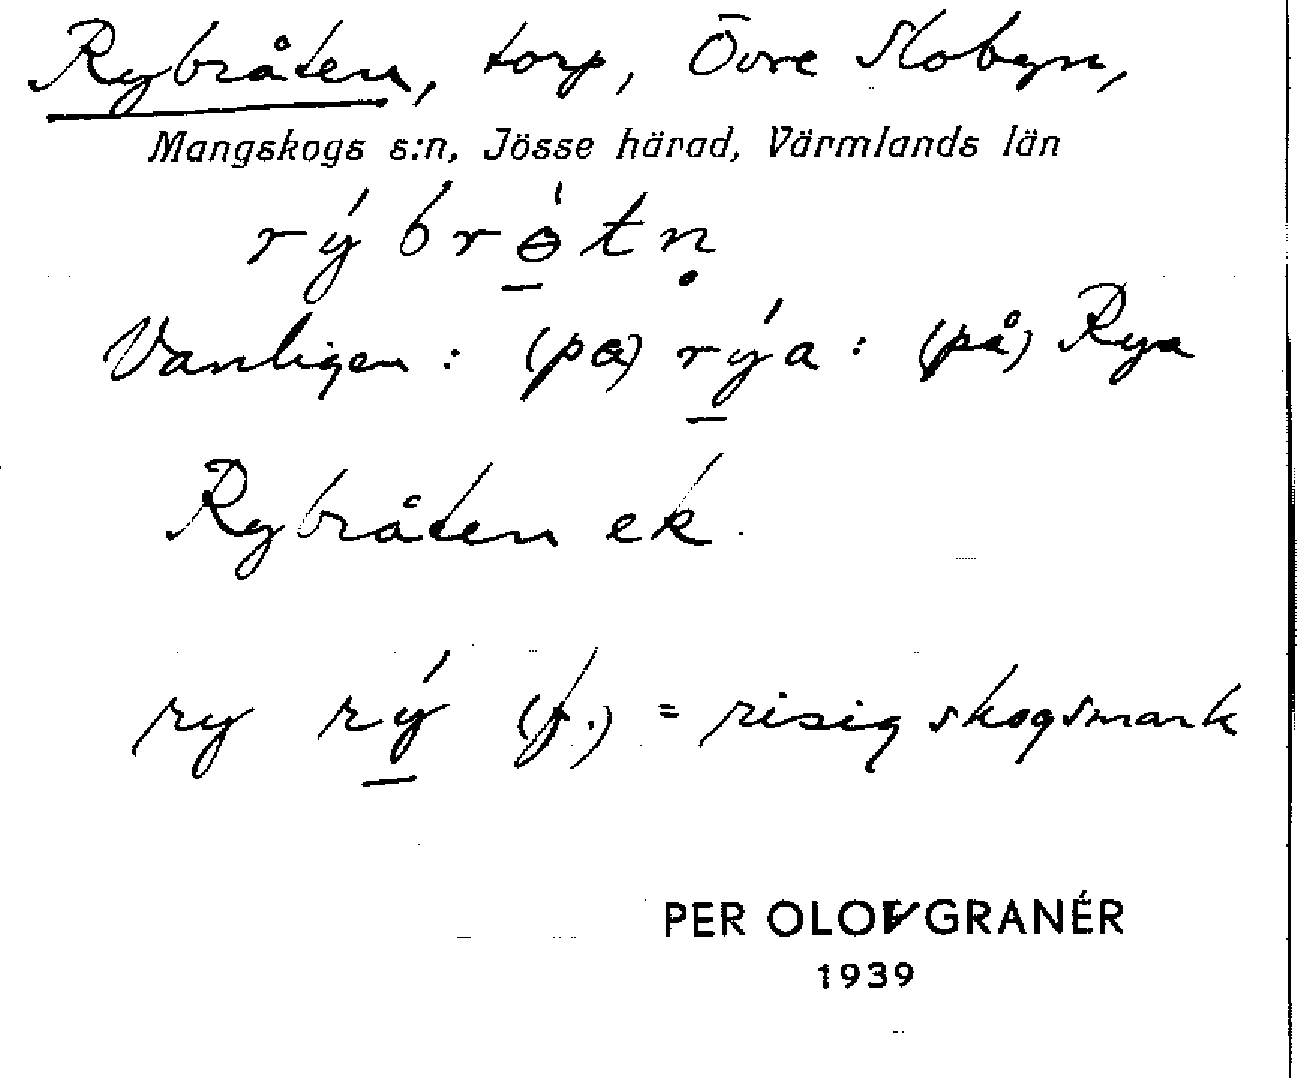 Rybråten, torp, Övre Slobyn,
Mangskogs s:n, Jösse härad, Värmlands län
rýbrɵ́tn̥
Vanligen : (pɑ) rýa : (på) Rya
Rybråten ek.
ry rý (f.) = risig skogsmark
PER OLOV GRANÉR
1939